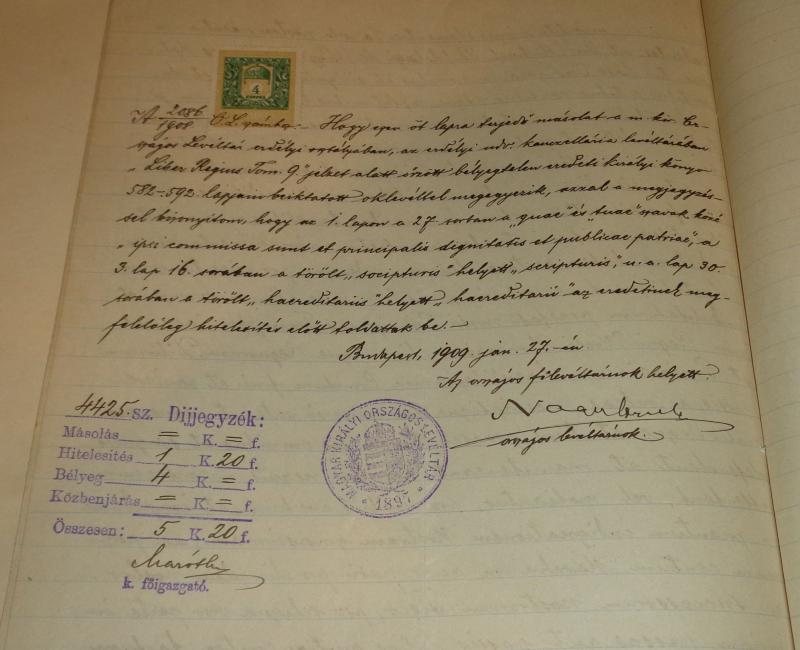 4
A 2086/1908 O.L. számhoz. – Hogy ezen öt lapra terjedő másolat a m. kir. Or-
szágos Levéltár erdélyi osztályában, az erdélyi udv. kanczellária levéltárában
„Liber Regius Tom. 9" jelzet alatt őrzött bélyegtelen eredeti királyi könyv
582–592 lapjain beiktatott oklevéllel megegyezik, azzal a megjegyzés-
sel bizonyitom, hogy az 1. lapon a 27 sorban a „quae" és „tuae" szavak közé
„ipsi commissa sunt et principalis dignitatis et publicae patriae", a
3. lap 16. sorában a törölt „socipturis" helyett „scripturis", u. a. lap 30.
sorában a törölt „haereditariis" helyett „haereditarii" az eredetinek meg-
felelőleg hitelesités előtt toldattak be. –
Budapest, 1909. jan. 27.-én
Az országos főlevéltárnok helyett.
országos levéltárnok.
4425. sz. Dijjegyzék:
Másolás = K. = f.
Hitelesítés 1 K. 20 f.
Bélyeg 4 K. = f.
Közbenjárás = K. = f.
Összesen: 5 K. 20 f.
Maróthy
k. főigazgató.
MAGYAR KIRÁLYI ORSZÁGOS LEVÉLTÁR
1897